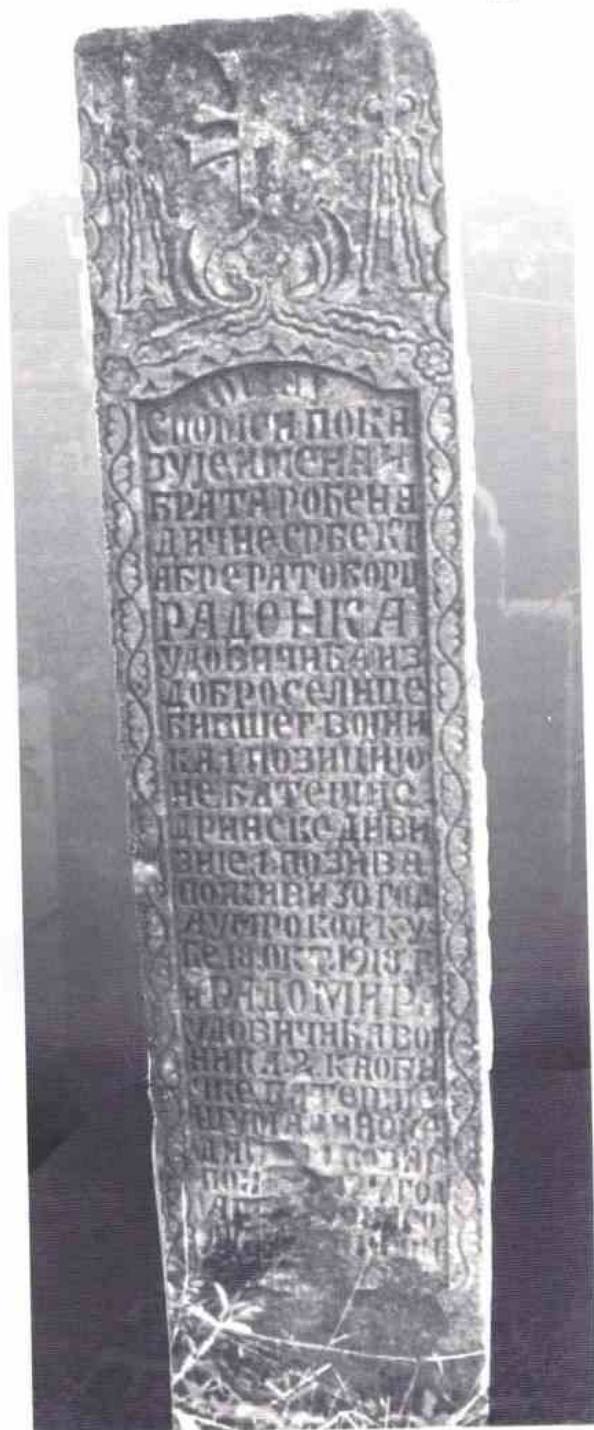 СПОМЕН ПОКА
ЗУЈЕ ИМЕНА И
БРАТА РОЂЕНА
ДИЧНЕ СРБЕ К
А БРЕ РАТОБОРЦ
РАДОНКА
УДОВИЧИЋА ИЗ
ДОБРОСЕЛИЦЕ
БИВШЕГ ВОЈНИ
КА 1 ПОЗИЦИЈО
НЕ БАТЕРИЈЕ
ДРИНСКЕ ДИВИ
ЗИЈЕ 1 ПОЗИВА
ПОЖИВИ 30 ГОД
А УМРО КОД КУ
ЋЕ 18 ОКТ. 1918. Г
И РАДОМИРА
УДОВИЧИЋА ВОЈ
НИКА 2 ХАОБИ
ЧКЕ БАТЕРИЈЕ
ШУМАДИНСКЕ
ПОЗИВ
ГОД